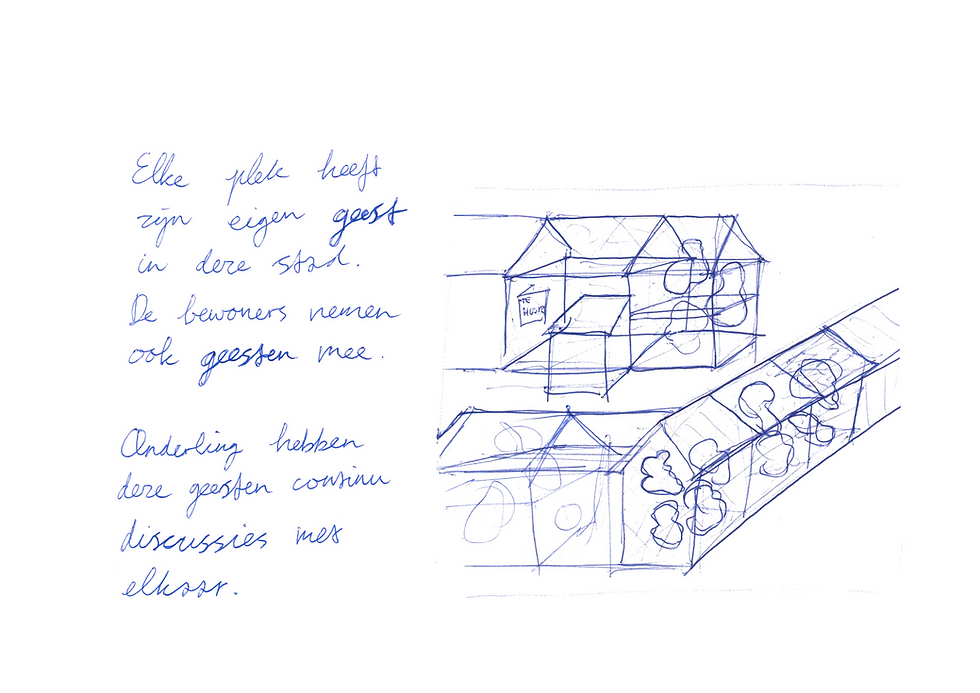 Elke plek heeft
zijn eigen geest
in deze stad.
De bewoners nemen
ook geesten mee.
Onderling hebben
deze geesten continu
discussies met
elkaar.
TE
HUUR